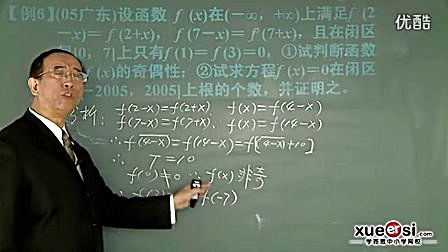 优酷
【例6】(05广东)设函数 f (x)在(－∞, +∞)上满足f (2
－x)= f (2+x), f (7－x)= f (7+x), 且在闭区
[0, 7]上只有f(1)=f(3)=0, ①试判断函数
f(x)的奇偶性；②试求方程f(x)=0在闭区
－2005, 2005]上根的个数, 并证明之。
析: f(2-x)=f(2+x). f(x)=f(4-x)
f(7-x)=f(7+x). f(x)=f(14-x)
∴ f(4-x)=f(14-x)=f[(4-x)+10]
∴ T=10
f(0)≠0 ∴ f(x)非奇
f(-7)
xueersi.com
学而思中小学网校